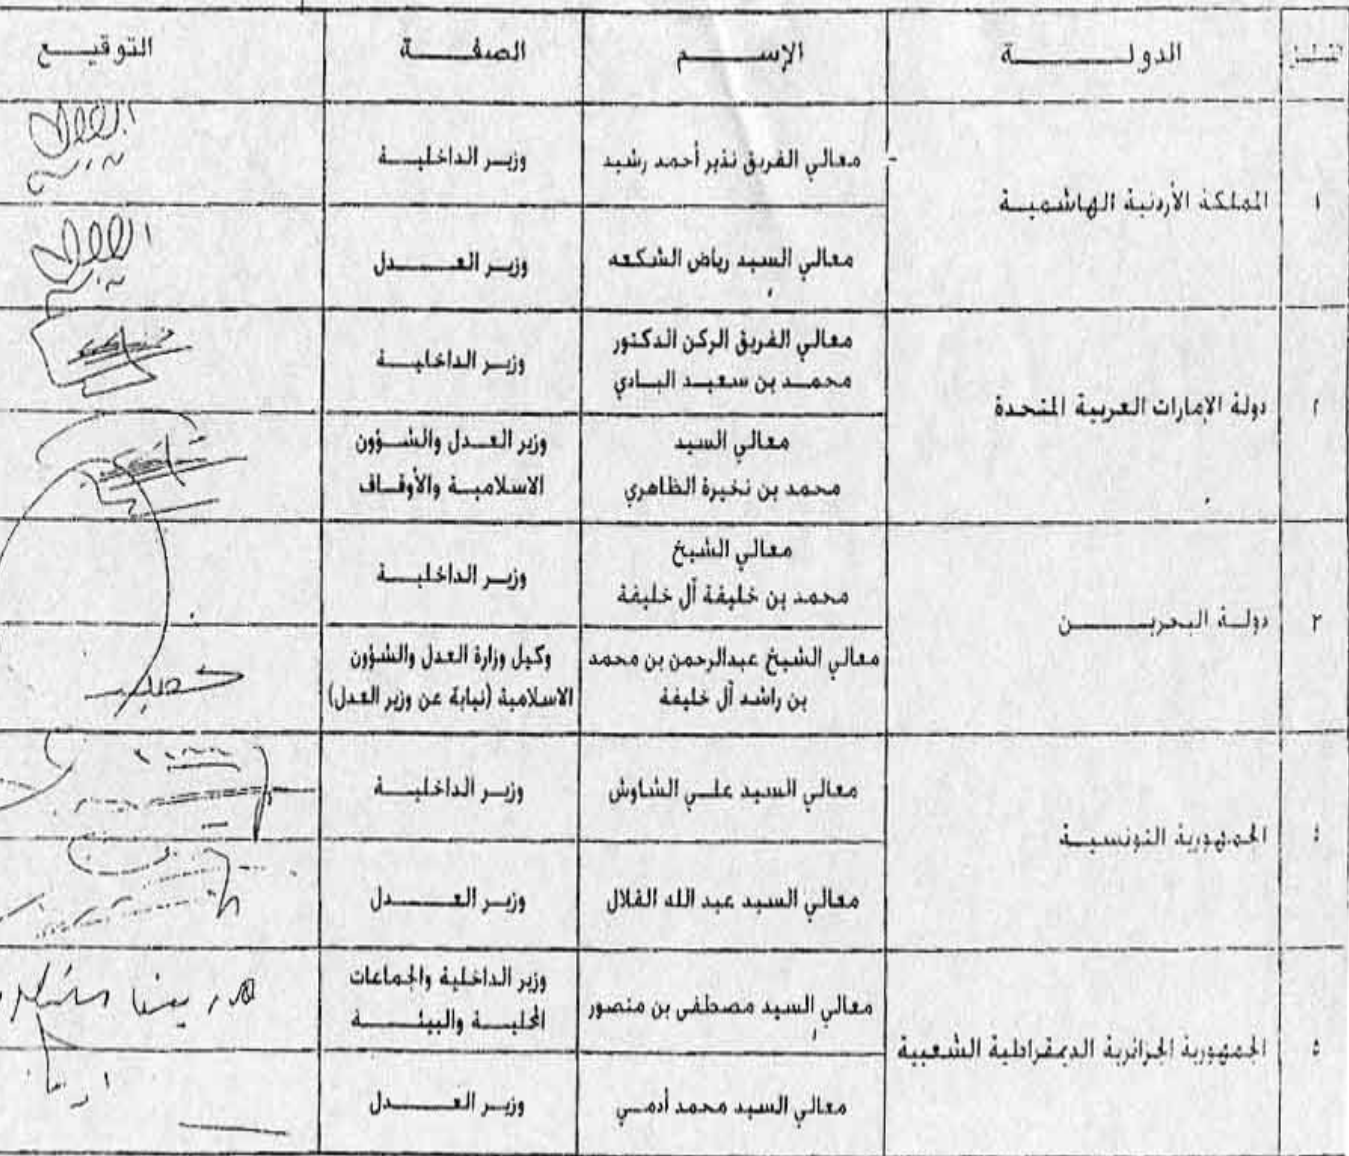 الدولـــــــــة الإســـــم الصفـــــة التوقيـــع
١ المملكة الأردنية الهاشميـة
معالي الفريق نذير أحمد رشيد وزيـر الداخليـــة
معالي السيد رياض الشكعه وزيـر العـــــدل
٢ دولة الإمارات العربية المتحدة
معالي الفريق الركن الدكتور
محمـد بن سعيـد البـادي
وزيـر الداخليـة
معالي السيد
محمد بن نخيرة الظاهري
وزير العـدل والشـؤون
الاسلاميـة والأوقـاف
٣ دولـة البحريـــــــن
معالي الشيخ
محمد بن خليفة آل خليفة
وزيـر الداخليـــة
معالي الشيخ عبدالرحمن بن محمد
بن راشد آل خليفة
وكيل وزارة العدل والشؤون
الاسلامية (نيابة عن وزير العدل)
٤ الجمهورية التونسيـة
معالي السيد علـي الشاوش وزيـر الداخليـــة
معالي السيد عبد الله القلال وزيـر العـــــدل
٥ الجمهورية الجزائرية الديمقراطية الشعبية
معالي السيد مصطفى بن منصور
وزير الداخلية والجماعات
المحليـــة والبيئــــة
معالي السيد محمد أدمـي وزيـر العـــــدل